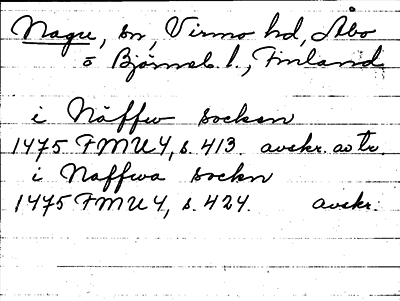 Nagu, sn, Virmo hd, Åbo
o Björneb. l., Finland
i Näffw socken
1475 FMU 4, s. 413. avskr. av tr.
i Naffwa sockn
1475 FMU 4, s. 424. avskr.